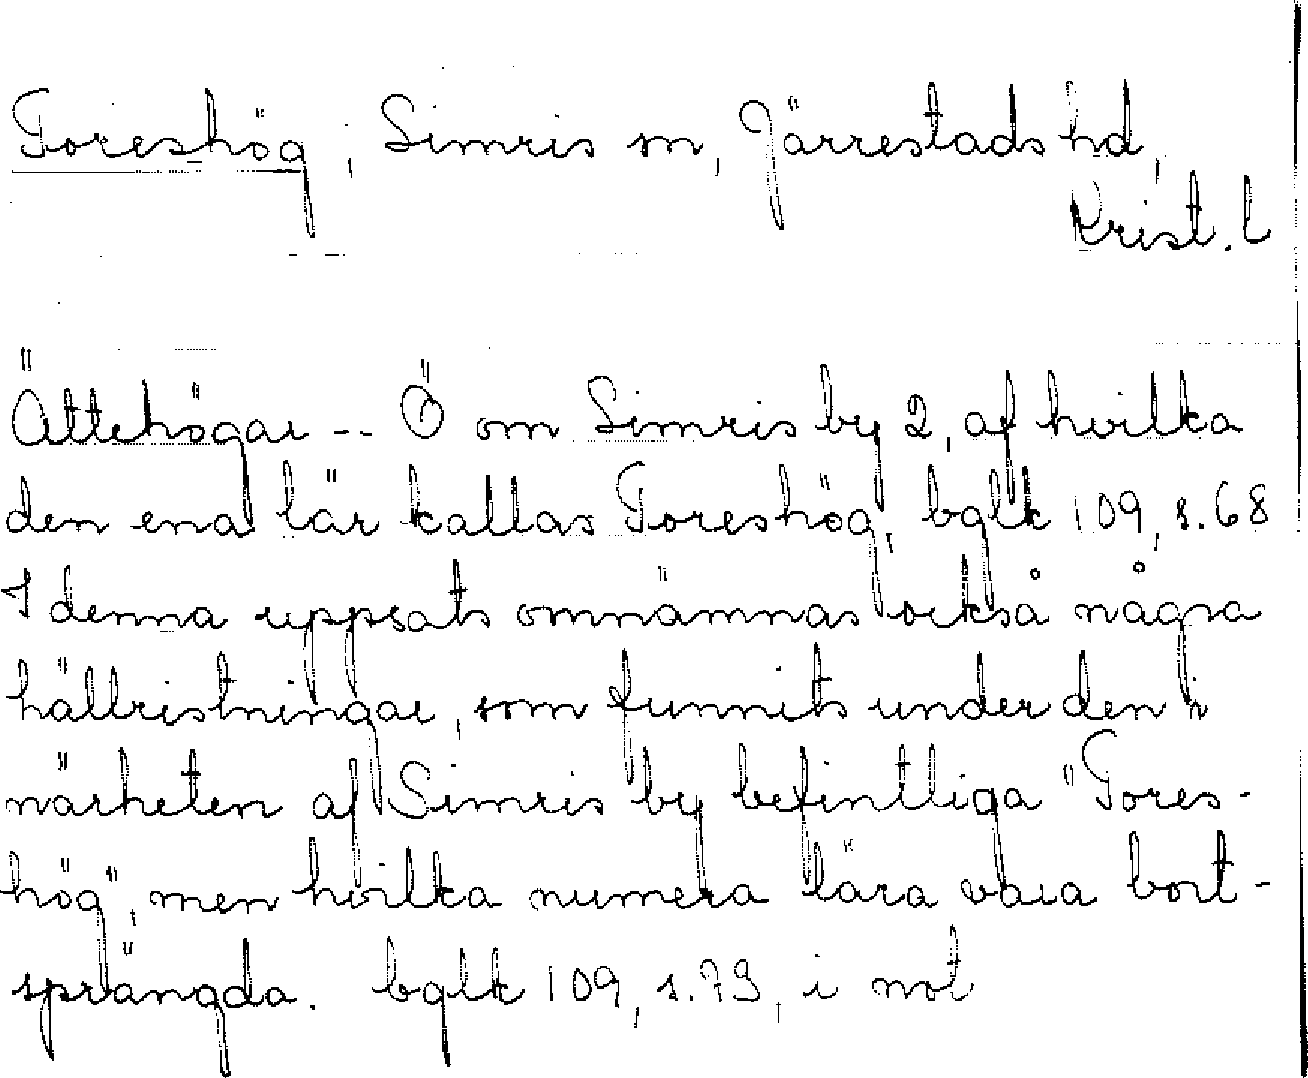 Toreshög, Simris sn, Järrestads hd,
Krist. l
Ättehögar -- Ö om Simris by 2, af hvilka
den ena lär kallas Toreshög, bglk 109, s. 68
I denna uppsats omnämnas också några
hällristningar, som funnits under den i
närheten af Simris by befintliga "Tores-
hög", men hvilka numera lära vara bort-
sprängda. bglk 109, s. 79, i not